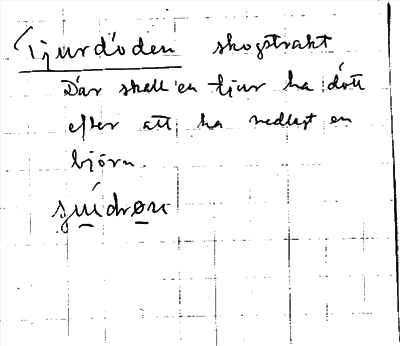 Tjurdöden skogstrakt
Där skall en tjur ha dött
efter att ha nedlagt en
björn.